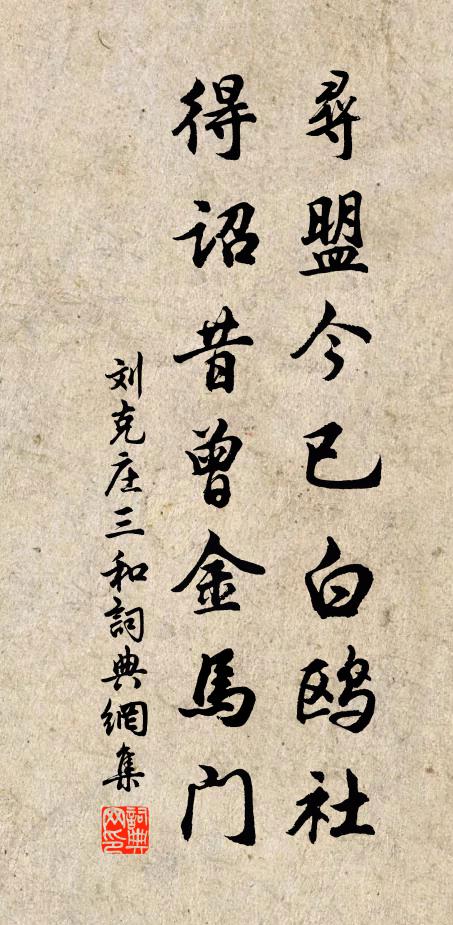 尋盟今已白鸥社
得詔昔曾金馬门
刘克庄三和詞典網集
詞典网印